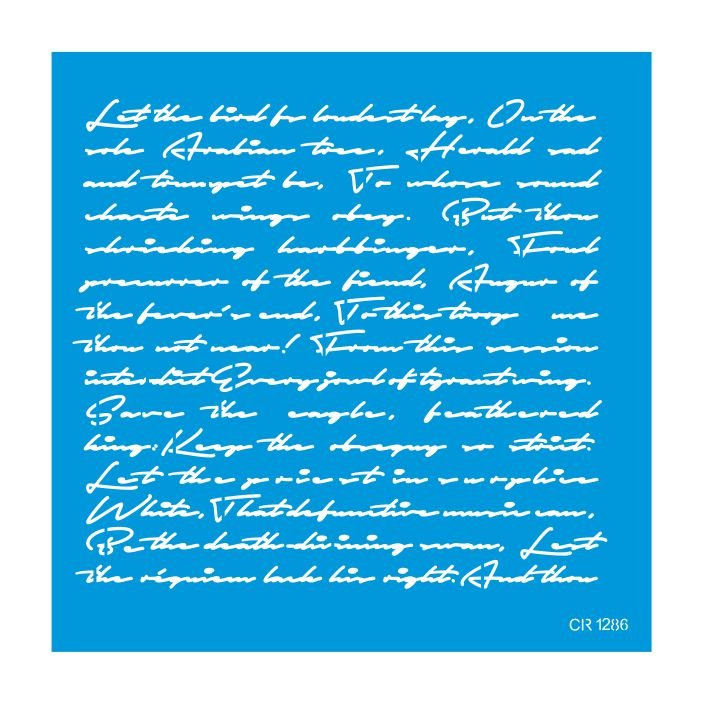 Let the bird for loudest lay, On the
sole Arabian tree, Herald sad
and trumpet be, To whose sound
chaste wings obey. But thou
shrieking harbbinger, Foud
precurrer of the fiend, Augur of
the fever's end, To this troop me
thou not near! From this session
interdict Every jowl of tyrant wing.
Save the eagle, feathered
king: Keep the obsequy so strict.
Let the priest in surplice
White, That defunctive music can,
Be the death-divining swan, Lest
the réquiem lack his right. And thou
CR 1286